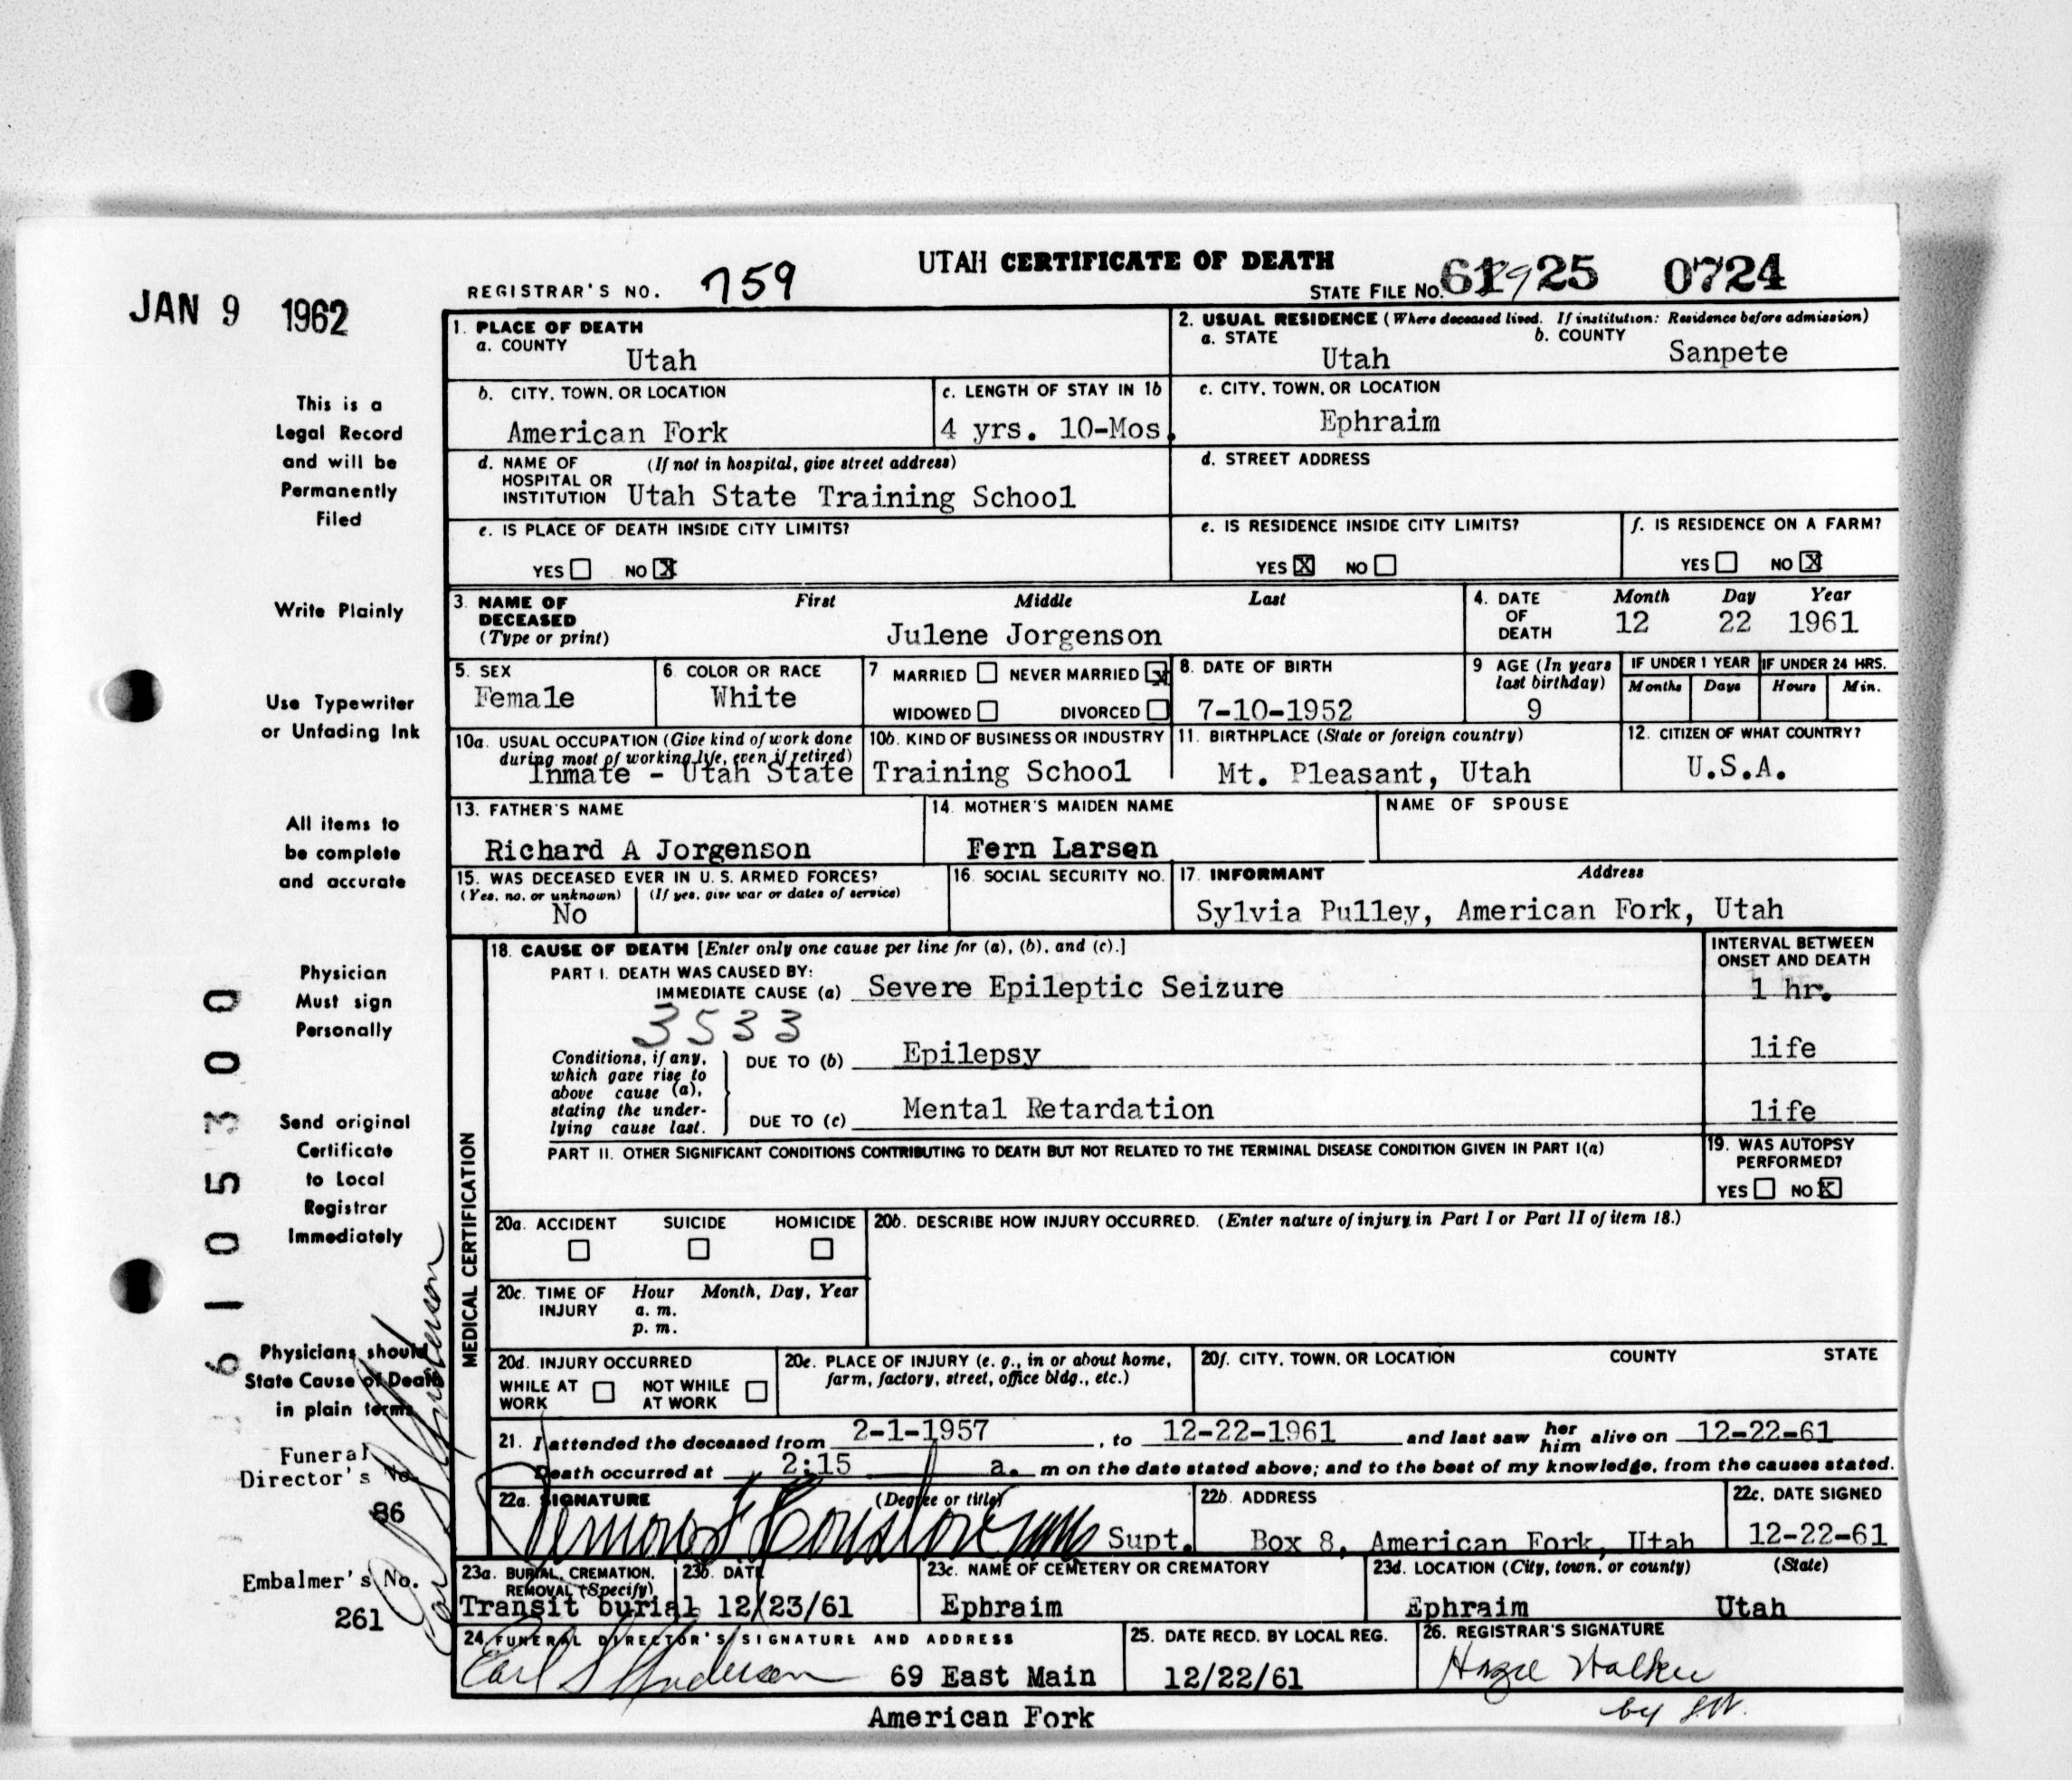 UTAH CERTIFICATE OF DEATH
JAN 9 1962
REGISTRAR'S NO. 759
STATE FILE NO. 61 25 0724
1. PLACE OF DEATH
a. COUNTY
Utah
2. USUAL RESIDENCE (Where deceased lived. If institution: Residence before admission)
a. STATE b. COUNTY
Utah Sanpete
b. CITY, TOWN, OR LOCATION
American Fork
c. LENGTH OF STAY IN 1b
4 yrs. 10-Mos.
c. CITY, TOWN, OR LOCATION
Ephraim
d. NAME OF HOSPITAL OR INSTITUTION (If not in hospital, give street address)
Utah State Training School
d. STREET ADDRESS
e. IS PLACE OF DEATH INSIDE CITY LIMITS?
YES NO X
e. IS RESIDENCE INSIDE CITY LIMITS?
YES X NO
f. IS RESIDENCE ON A FARM?
YES NO X
3. NAME OF DECEASED (Type or print)
First Middle Last
Julene Jorgenson
4. DATE OF DEATH
Month Day Year
12 22 1961
5. SEX
Female
6. COLOR OR RACE
White
7 MARRIED NEVER MARRIED X
WIDOWED DIVORCED
8. DATE OF BIRTH
7-10-1952
9 AGE (In years last birthday)
9
IF UNDER 1 YEAR
Months Days
IF UNDER 24 HRS.
Hours Min.
10a. USUAL OCCUPATION (Give kind of work done during most of working life, even if retired)
Inmate - Utah State
10b. KIND OF BUSINESS OR INDUSTRY
Training School
11. BIRTHPLACE (State or foreign country)
Mt. Pleasant, Utah
12. CITIZEN OF WHAT COUNTRY?
U.S.A.
13. FATHER'S NAME
Richard A Jorgenson
14. MOTHER'S MAIDEN NAME
Fern Larsen
NAME OF SPOUSE
15. WAS DECEASED EVER IN U. S. ARMED FORCES?
(Yes, no, or unknown) (If yes, give war or dates of service)
No
16. SOCIAL SECURITY NO.
17. INFORMANT Address
Sylvia Pulley, American Fork, Utah
MEDICAL CERTIFICATION
18. CAUSE OF DEATH [Enter only one cause per line for (a), (b), and (c).]
PART I. DEATH WAS CAUSED BY:
IMMEDIATE CAUSE (a) Severe Epileptic Seizure
3533
INTERVAL BETWEEN ONSET AND DEATH
1 hr.
Conditions, if any, which gave rise to above cause (a), stating the underlying cause last.
DUE TO (b) Epilepsy
life
DUE TO (c) Mental Retardation
life
PART II. OTHER SIGNIFICANT CONDITIONS CONTRIBUTING TO DEATH BUT NOT RELATED TO THE TERMINAL DISEASE CONDITION GIVEN IN PART I(a)
19. WAS AUTOPSY PERFORMED?
YES NO X
20a. ACCIDENT SUICIDE HOMICIDE
20b. DESCRIBE HOW INJURY OCCURRED. (Enter nature of injury in Part I or Part II of item 18.)
20c. TIME OF INJURY
Hour Month, Day, Year
a. m.
p. m.
20d. INJURY OCCURRED
WHILE AT WORK NOT WHILE AT WORK
20e. PLACE OF INJURY (e. g., in or about home, farm, factory, street, office bldg., etc.)
20f. CITY, TOWN, OR LOCATION COUNTY STATE
21. I attended the deceased from 2-1-1957, to 12-22-1961 and last saw her him alive on 12-22-61
Death occurred at 2:15 a. m on the date stated above; and to the best of my knowledge, from the causes stated.
22a. SIGNATURE (Degree or title)
Supt.
22b. ADDRESS
Box 8, American Fork, Utah
22c. DATE SIGNED
12-22-61
23a. BURIAL, CREMATION, REMOVAL (Specify)
Transit burial
23b. DATE
12/23/61
23c. NAME OF CEMETERY OR CREMATORY
Ephraim
23d. LOCATION (City, town, or county) (State)
Ephraim Utah
24. FUNERAL DIRECTOR'S SIGNATURE AND ADDRESS
Earl S Anderson 69 East Main
American Fork
25. DATE RECD. BY LOCAL REG.
12/22/61
26. REGISTRAR'S SIGNATURE
Hazel Walker
by
This is a
Legal Record
and will be
Permanently
Filed
Write Plainly
Use Typewriter
or Unfading Ink
All items to
be complete
and accurate
Physician
Must sign
Personally
Send original
Certificate
to Local
Registrar
Immediately
Physicians should
State Cause of Death
in plain terms
Funeral
Director's No.
86
Embalmer's No.
261
Earl S Anderson
6105300